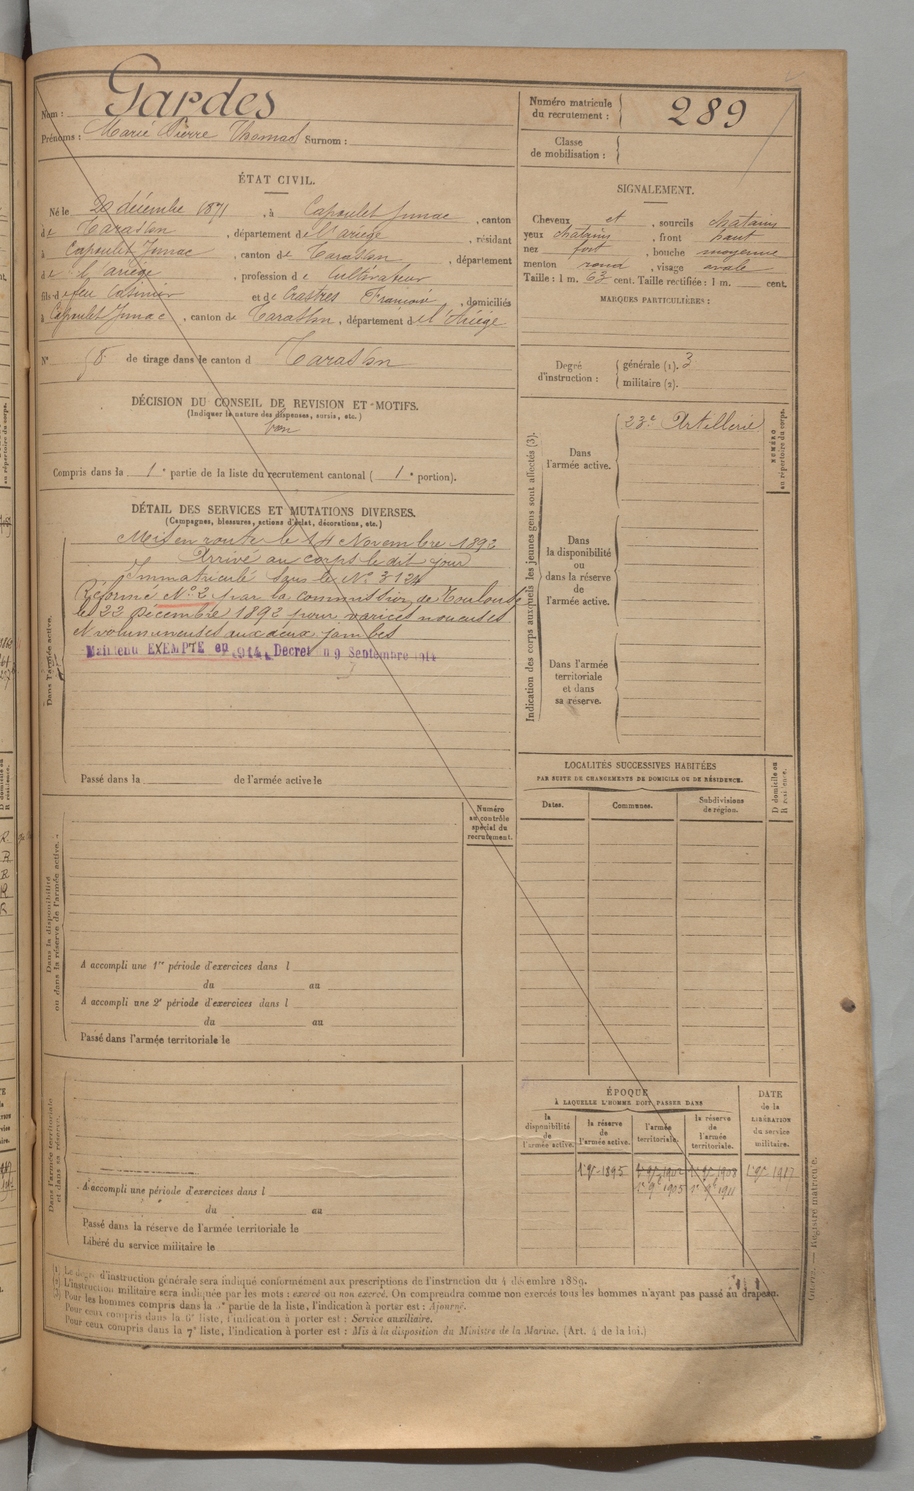 Nom : Gardes
Prénoms : Marie Pierre Thomas Surnom :
Numéro matricule du recrutement : 289
Classe de mobilisation :
ÉTAT CIVIL.
Né le 20 décembre 1871, à Capoulet Junac, canton
de Tarascon, département de l'Ariège, résidant
à Capoulet Junac, canton de Tarascon, département
de l'Ariège, profession de cultivateur
fils de feu Casimir et de Crastres Françoise, domiciliés
à Capoulet Junac, canton de Tarascon, département de l'Ariège
N° 58 de tirage dans le canton d Tarascon
SIGNALEMENT.
Cheveux et , sourcils chatains
yeux chatains , front haut
nez fort , bouche moyenne
menton rond , visage ovale
Taille : 1 m. 63 cent. Taille rectifiée : 1 m. cent.
MARQUES PARTICULIÈRES :
Degré d'instruction :
générale (1). 3
militaire (2).
DÉCISION DU CONSEIL DE REVISION ET MOTIFS.
(Indiquer la nature des dispenses, sursis, etc.)
bon
Compris dans la 1e partie de la liste du recrutement cantonal ( 1e portion).
DÉTAIL DES SERVICES ET MUTATIONS DIVERSES.
(Campagnes, blessures, actions d'éclat, décorations, etc.)
Dans l'armée active.
Mis en route le 14 Novembre 1892
Arrivé au corps le dit jour
Immatriculé sous le N° 3124
Réformé N° 2 par la commission de Toulouse
le 22 Décembre 1892 pour varices noueuses
et volumineuses aux deux jambes
Maintenu EXEMPTÉ en 1914, Décret du 9 Septembre 1914
Passé dans la de l'armée active le
Indication des corps auxquels les jeunes gens sont affectés (3).
Dans l'armée active.
23e Artillerie
NUMÉRO au répertoire du corps.
Dans la disponibilité ou dans la réserve de l'armée active.
Dans l'armée territoriale et dans sa réserve.
LOCALITÉS SUCCESSIVES HABITÉES
PAR SUITE DE CHANGEMENTS DE DOMICILE OU DE RÉSIDENCE.
Dates. Communes. Subdivisions de région. D domicile ou R résidence.
Numéro au contrôle spécial du recrutement.
Dans la disponibilité ou dans la réserve de l'armée active.
A accompli une 1re période d'exercices dans l
du au
A accompli une 2e période d'exercices dans l
du au
Passé dans l'armée territoriale le
Dans l'armée territoriale et dans sa réserve.
A accompli une période d'exercices dans l
du au
Passé dans la réserve de l'armée territoriale le
Libéré du service militaire le
ÉPOQUE
À LAQUELLE L'HOMME DOIT PASSER DANS
la disponibilité de l'armée active. la réserve de l'armée active. l'armée territoriale. la réserve de l'armée territoriale.
DATE de la LIBÉRATION du service militaire.
1er 9bre 1895 1er 9bre 1902 1er 9bre 1908 1er 9bre 1917
1er 9bre 1905 1er 9bre 1911
(1) Le degré d'instruction générale sera indiqué conformément aux prescriptions de l'instruction du 4 décembre 1889.
(2) L'instruction militaire sera indiquée par les mots : exercé ou non exercé. On comprendra comme non exercés tous les hommes n'ayant pas passé au drapeau.
(3) Pour les hommes compris dans la 5e partie de la liste, l'indication à porter est : Ajourné.
Pour ceux compris dans la 6e liste, l'indication à porter est : Service auxiliaire.
Pour ceux compris dans la 7e liste, l'indication à porter est : Mis à la disposition du Ministre de la Marine. (Art. 4 de la loi.)
Registre matricule.